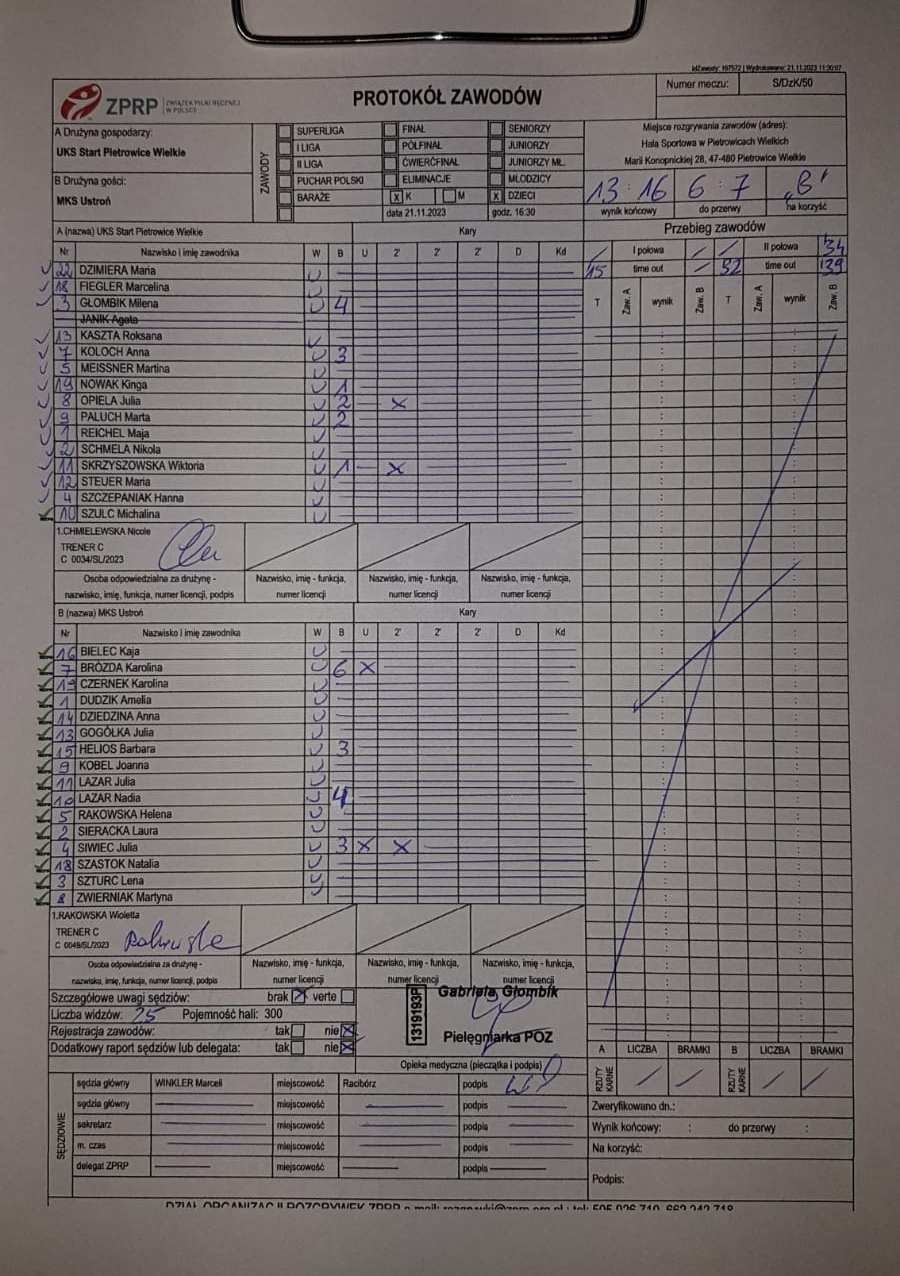 IdZawody: 197572 | Wydrukowano: 21.11.2023 11:30:07
ZPRP ZWIĄZEK PIŁKI RĘCZNEJ W POLSCE
PROTOKÓŁ ZAWODÓW
Numer meczu: S/DzK/50
A Drużyna gospodarzy:
UKS Start Pietrowice Wielkie
B Drużyna gości:
MKS Ustroń
ZAWODY
SUPERLIGA FINAŁ SENIORZY
I LIGA PÓŁFINAŁ JUNIORZY
II LIGA ĆWIERĆFINAŁ JUNIORZY MŁ.
PUCHAR POLSKI ELIMINACJE MŁODZICY
BARAŻE x K M x DZIECI
data 21.11.2023 godz. 16:30
Miejsce rozgrywania zawodów (adres):
Hala Sportowa w Pietrowicach Wielkich
Marii Konopnickiej 28, 47-480 Pietrowice Wielkie
13 : 16 6 : 7 "B"
wynik końcowy do przerwy na korzyść
A (nazwa) UKS Start Pietrowice Wielkie Kary
Nr Nazwisko i imię zawodnika W B U 2' 2' 2' D Kd
22 DZIMIERA Maria
18 FIEGLER Marcelina
3 GŁOMBIK Milena 4
JANIK Agata
13 KASZTA Roksana
7 KOLOCH Anna 3
5 MEISSNER Martina
19 NOWAK Kinga 1
8 OPIELA Julia 2 x
9 PALUCH Marta 2
1 REICHEL Maja
2 SCHMELA Nikola
11 SKRZYSZOWSKA Wiktoria 1 x
12 STEUER Maria
4 SZCZEPANIAK Hanna
10 SZULC Michalina
1.CHMIELEWSKA Nicole
TRENER C
C 0034/SL/2023
Osoba odpowiedzialna za drużynę - nazwisko, imię, funkcja, numer licencji, podpis
Nazwisko, imię - funkcja, numer licencji
Nazwisko, imię - funkcja, numer licencji
Nazwisko, imię - funkcja, numer licencji
B (nazwa) MKS Ustroń Kary
Nr Nazwisko i imię zawodnika W B U 2' 2' 2' D Kd
16 BIELEC Kaja
7 BRÓZDA Karolina 6 x
19 CZERNEK Karolina
1 DUDZIK Amelia
14 DZIEDZINA Anna
13 GOGÓŁKA Julia
15 HELIOS Barbara 3
9 KOBEL Joanna
11 LAZAR Julia
10 LAZAR Nadia 4
5 RAKOWSKA Helena
2 SIERACKA Laura
4 SIWIEC Julia 3 x x
18 SZASTOK Natalia
3 SZTURC Lena
8 ZWIERNIAK Martyna
1.RAKOWSKA Wioletta
TRENER C
C 0049/SL/2023
Osoba odpowiedzialna za drużynę - nazwisko, imię, funkcja, numer licencji, podpis
Nazwisko, imię - funkcja, numer licencji
Nazwisko, imię - funkcja, numer licencji
Nazwisko, imię - funkcja, numer licencji
Szczegółowe uwagi sędziów: brak x verte
Liczba widzów: 25 Pojemność hali: 300
Rejestracja zawodów: tak nie x
Dodatkowy raport sędziów lub delegata: tak nie x
1319193P
Gabriela Głombik
Pielęgniarka POZ
Opieka medyczna (pieczątka i podpis)
SĘDZIOWIE
sędzia główny WINKLER Marceli miejscowość Racibórz podpis
sędzia główny miejscowość podpis
sekretarz miejscowość podpis
m. czas miejscowość podpis
delegat ZPRP miejscowość podpis
Przebieg zawodów
I połowa II połowa 34
15 time out 52 time out 139
T Zaw. A wynik Zaw. B T Zaw. A wynik Zaw. B
A LICZBA BRAMKI B LICZBA BRAMKI
RZUTY KARNE RZUTY KARNE
Zweryfikowano dn.:
Wynik końcowy: : do przerwy :
Na korzyść:
Podpis: